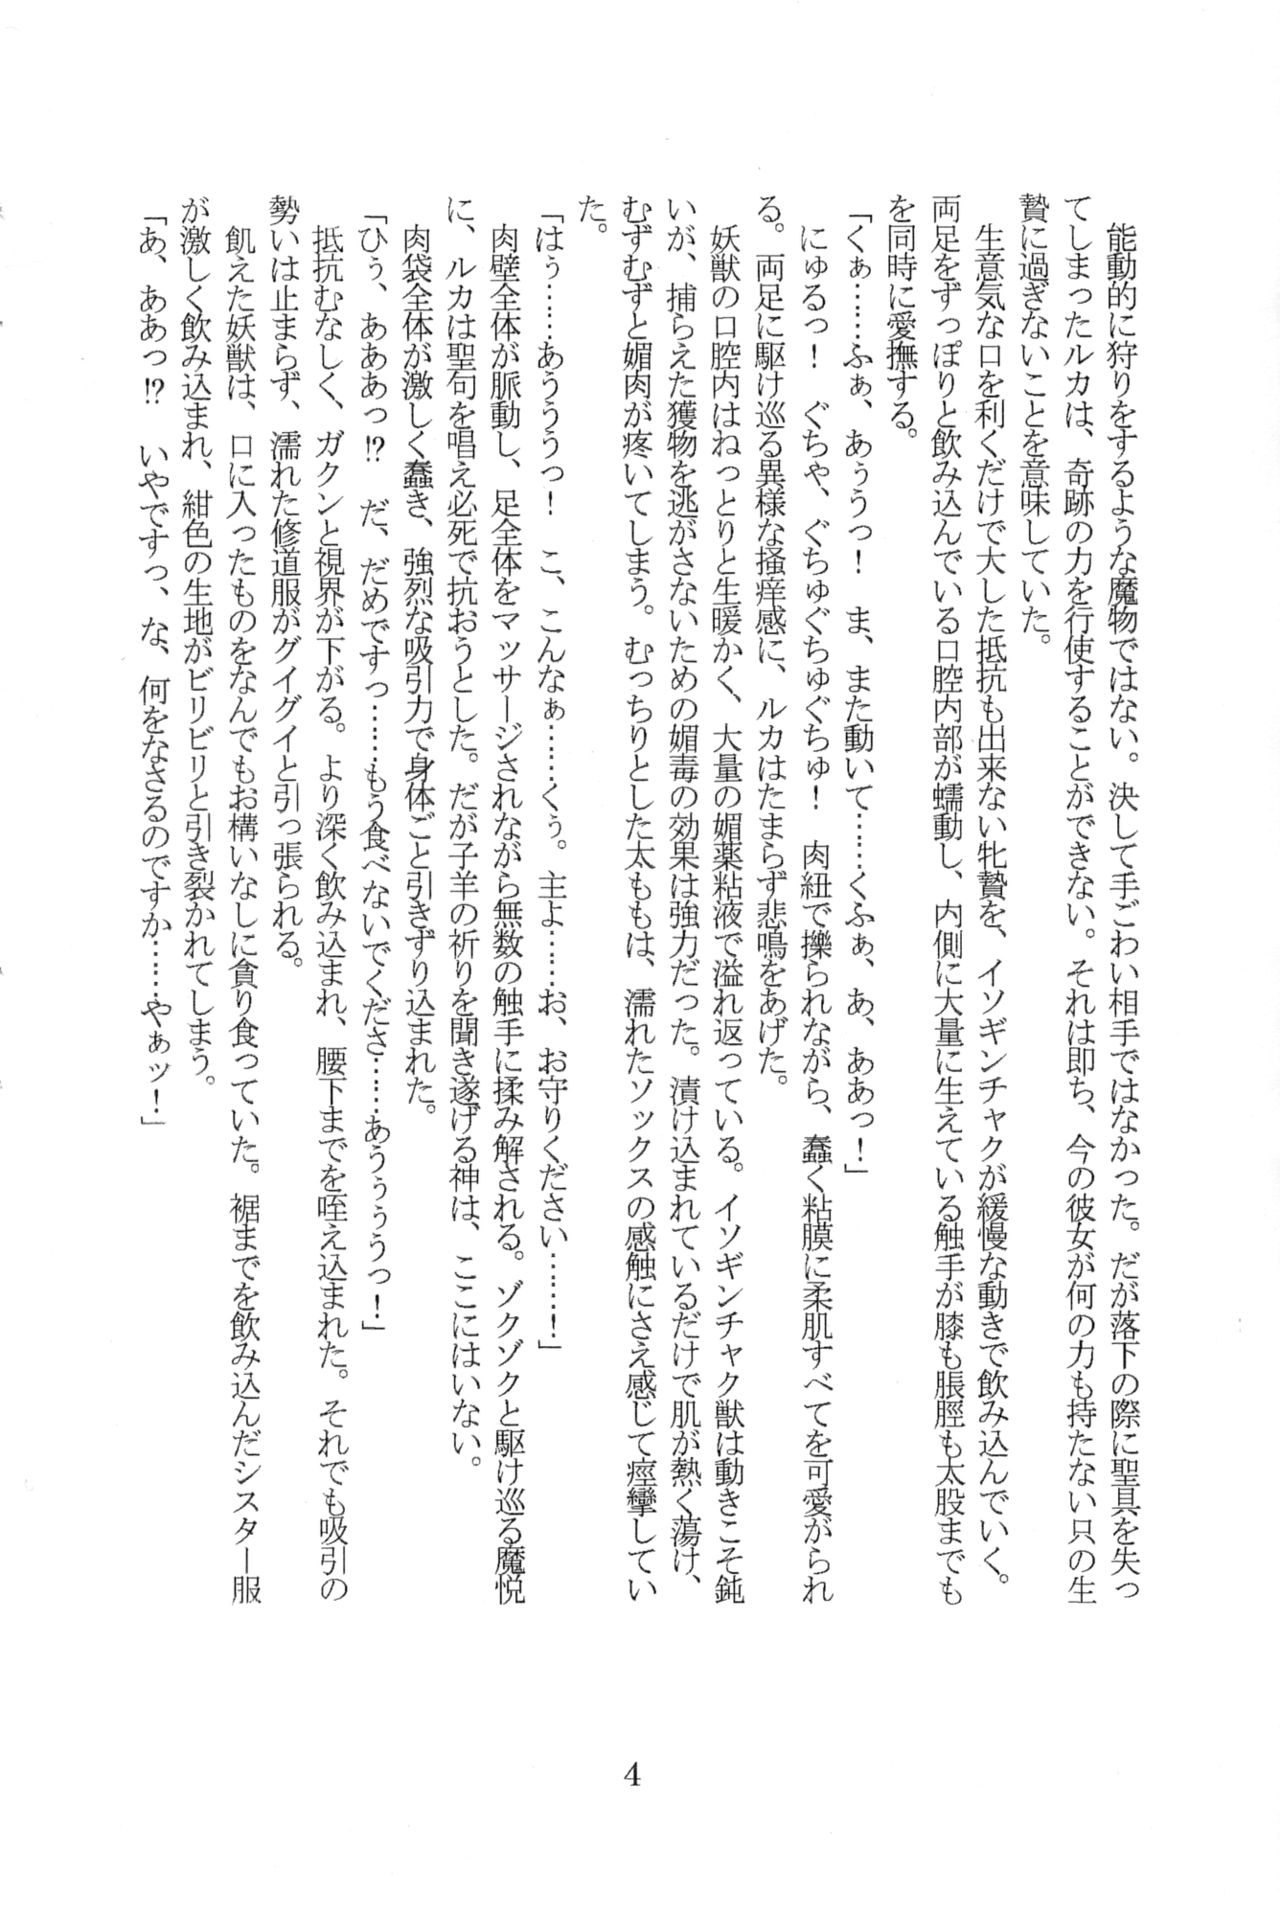 能動的に狩りをするような魔物ではない。決して手ごわい相手ではなかった。だが落下の際に聖具を失っ
てしまったルカは、奇跡の力を行使することができない。それは即ち、今の彼女が何の力も持たない只の生
贄に過ぎないことを意味していた。
　生意気な口を利くだけで大した抵抗も出来ない牝贄を、イソギンチャクが緩慢な動きで飲み込んでいく。
両足をずっぽりと飲み込んでいる口腔内部が蠕動し、内側に大量に生えている触手が膝も脹脛も太股までも
を同時に愛撫する。
「くぁ……ふぁ、あぅうっ！　ま、また動いて……くふぁ、あ、ああっ！」
　にゅるっ！　ぐちゃ、ぐちゅぐちゅぐちゅ！　肉紐で擽られながら、蠢く粘膜に柔肌すべてを可愛がられ
る。両足に駆け巡る異様な掻痒感に、ルカはたまらず悲鳴をあげた。
　妖獣の口腔内はねっとりと生暖かく、大量の媚薬粘液で溢れ返っている。イソギンチャク獣は動きこそ鈍
いが、捕らえた獲物を逃がさないための媚毒の効果は強力だった。漬け込まれているだけで肌が熱く蕩け、
むずむずと媚肉が疼いてしまう。むっちりとした太ももは、濡れたソックスの感触にさえ感じて痙攣してい
た。
「はぅ……あうううっ！　こ、こんなぁ……くぅ。主よ……お、お守りください……！」
　肉壁全体が脈動し、足全体をマッサージされながら無数の触手に揉み解される。ゾクゾクと駆け巡る魔悦
に、ルカは聖句を唱え必死で抗おうとした。だが子羊の祈りを聞き遂げる神は、ここにはいない。
　肉袋全体が激しく蠢き、強烈な吸引力で身体ごと引きずり込まれた。
「ひぅ、あああっ!?　だ、だめですっ……もう食べないでくださ……あうぅぅうっ！」
　抵抗むなしく、ガクンと視界が下がる。より深く飲み込まれ、腰下までを咥え込まれた。それでも吸引の
勢いは止まらず、濡れた修道服がグイグイと引っ張られる。
　飢えた妖獣は、口に入ったものをなんでもお構いなしに貪り食っていた。裾までを飲み込んだシスター服
が激しく飲み込まれ、紺色の生地がビリビリと引き裂かれてしまう。
「あ、ああっ!?　いやですっ、な、何をなさるのですか……やぁッ！」
4